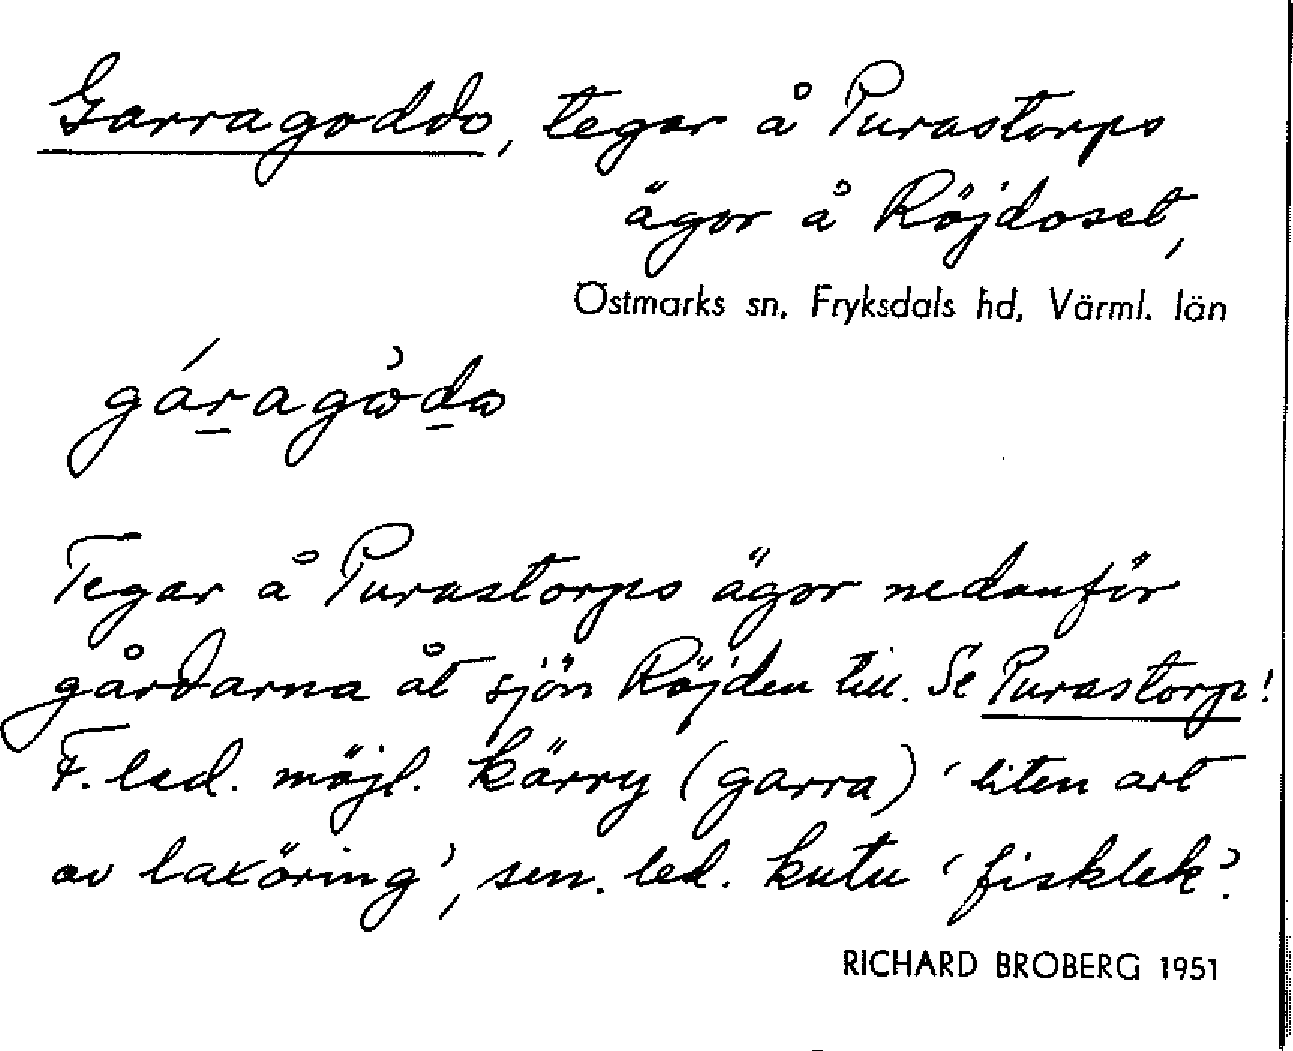 Garragoddo, tegar å Purastorps
ägor å Röjdoset,
Östmarks sn, Fryksdals hd, Värml. län
gáragòdω
Tegar å Purastorps ägor nedanför
gårdarna åt sjön Röjden till. Se Purastorp!
F. led. möjl. kärry (garra) 'liten art
av laxöring', sen. led. kutu 'fisklek'.
RICHARD BROBERG 1951